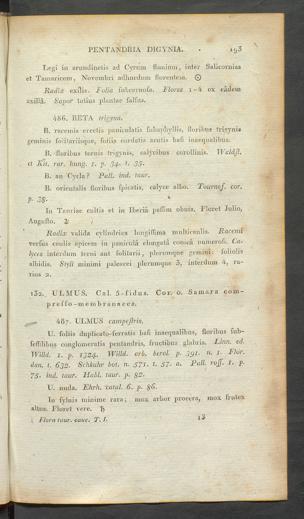 PENTANDRIA DIGYNIA. 193
Legi in arundinetis ad Cyrum fluvium, inter Salicornias
et Tamaricem, Novembri adhucdum florentem. ☉
Radix exilis. Folia subcarnosa. Flores 1-4 ex eâdem
axillâ. Sapor totius plantae salsus.
486. BETA trigyna.
B. racemis erectis paniculatis subaphyllis, floribus trigynis
geminis solitariisque, foliis cordatis acutis basi inaequalibus.
B. floribus ternis trigynis, calycibus corollinis. Waldst.
et Kit. rar. hung. 1. p. 34. t. 35.
B. an Cycla? Pall. ind. taur.
B. orientalis floribus spicatis, calyce albo. Tournef. cor.
p. 38.
In Tauriae cultis et in Iberiâ passim obuia. Floret Julio,
Augusto. ♃
Radix valida cylindrica longissima multicaulis. Racemi
versus caulis apicem in paniculâ elongatâ comosâ numerosi. Ca-
lyces interdum terni aut solitarii, plerumque gemini: foliolis
albidis. Styli minimi palescei plerumque 3, interdum 4, ra-
rius 2.
132. ULMUS. Cal. 5-fidus. Cor. 0. Samara com-
presso-membranacea.
487. ULMUS campestris.
U. foliis duplicato-serratis basi inaequalibus, floribus sub-
sessilibus conglomeratis pentandris, fructibus glabris. Linn. ed.
Willd. 1. p. 1324. Willd. arb. berol. p. 391. n. 1. Flor.
dan. t. 632. Schkuhr bot. n. 571. t. 57. a. Pall. ross. 1. p.
75. ind. taur. Habl. taur. p. 82.
U. nuda. Ehrh. catal. 6. p. 86.
In sylvis minime rara; mox arbor procera, mox frutex
altus. Floret vere. ♄
Flora taur. cauc. T. I. 13